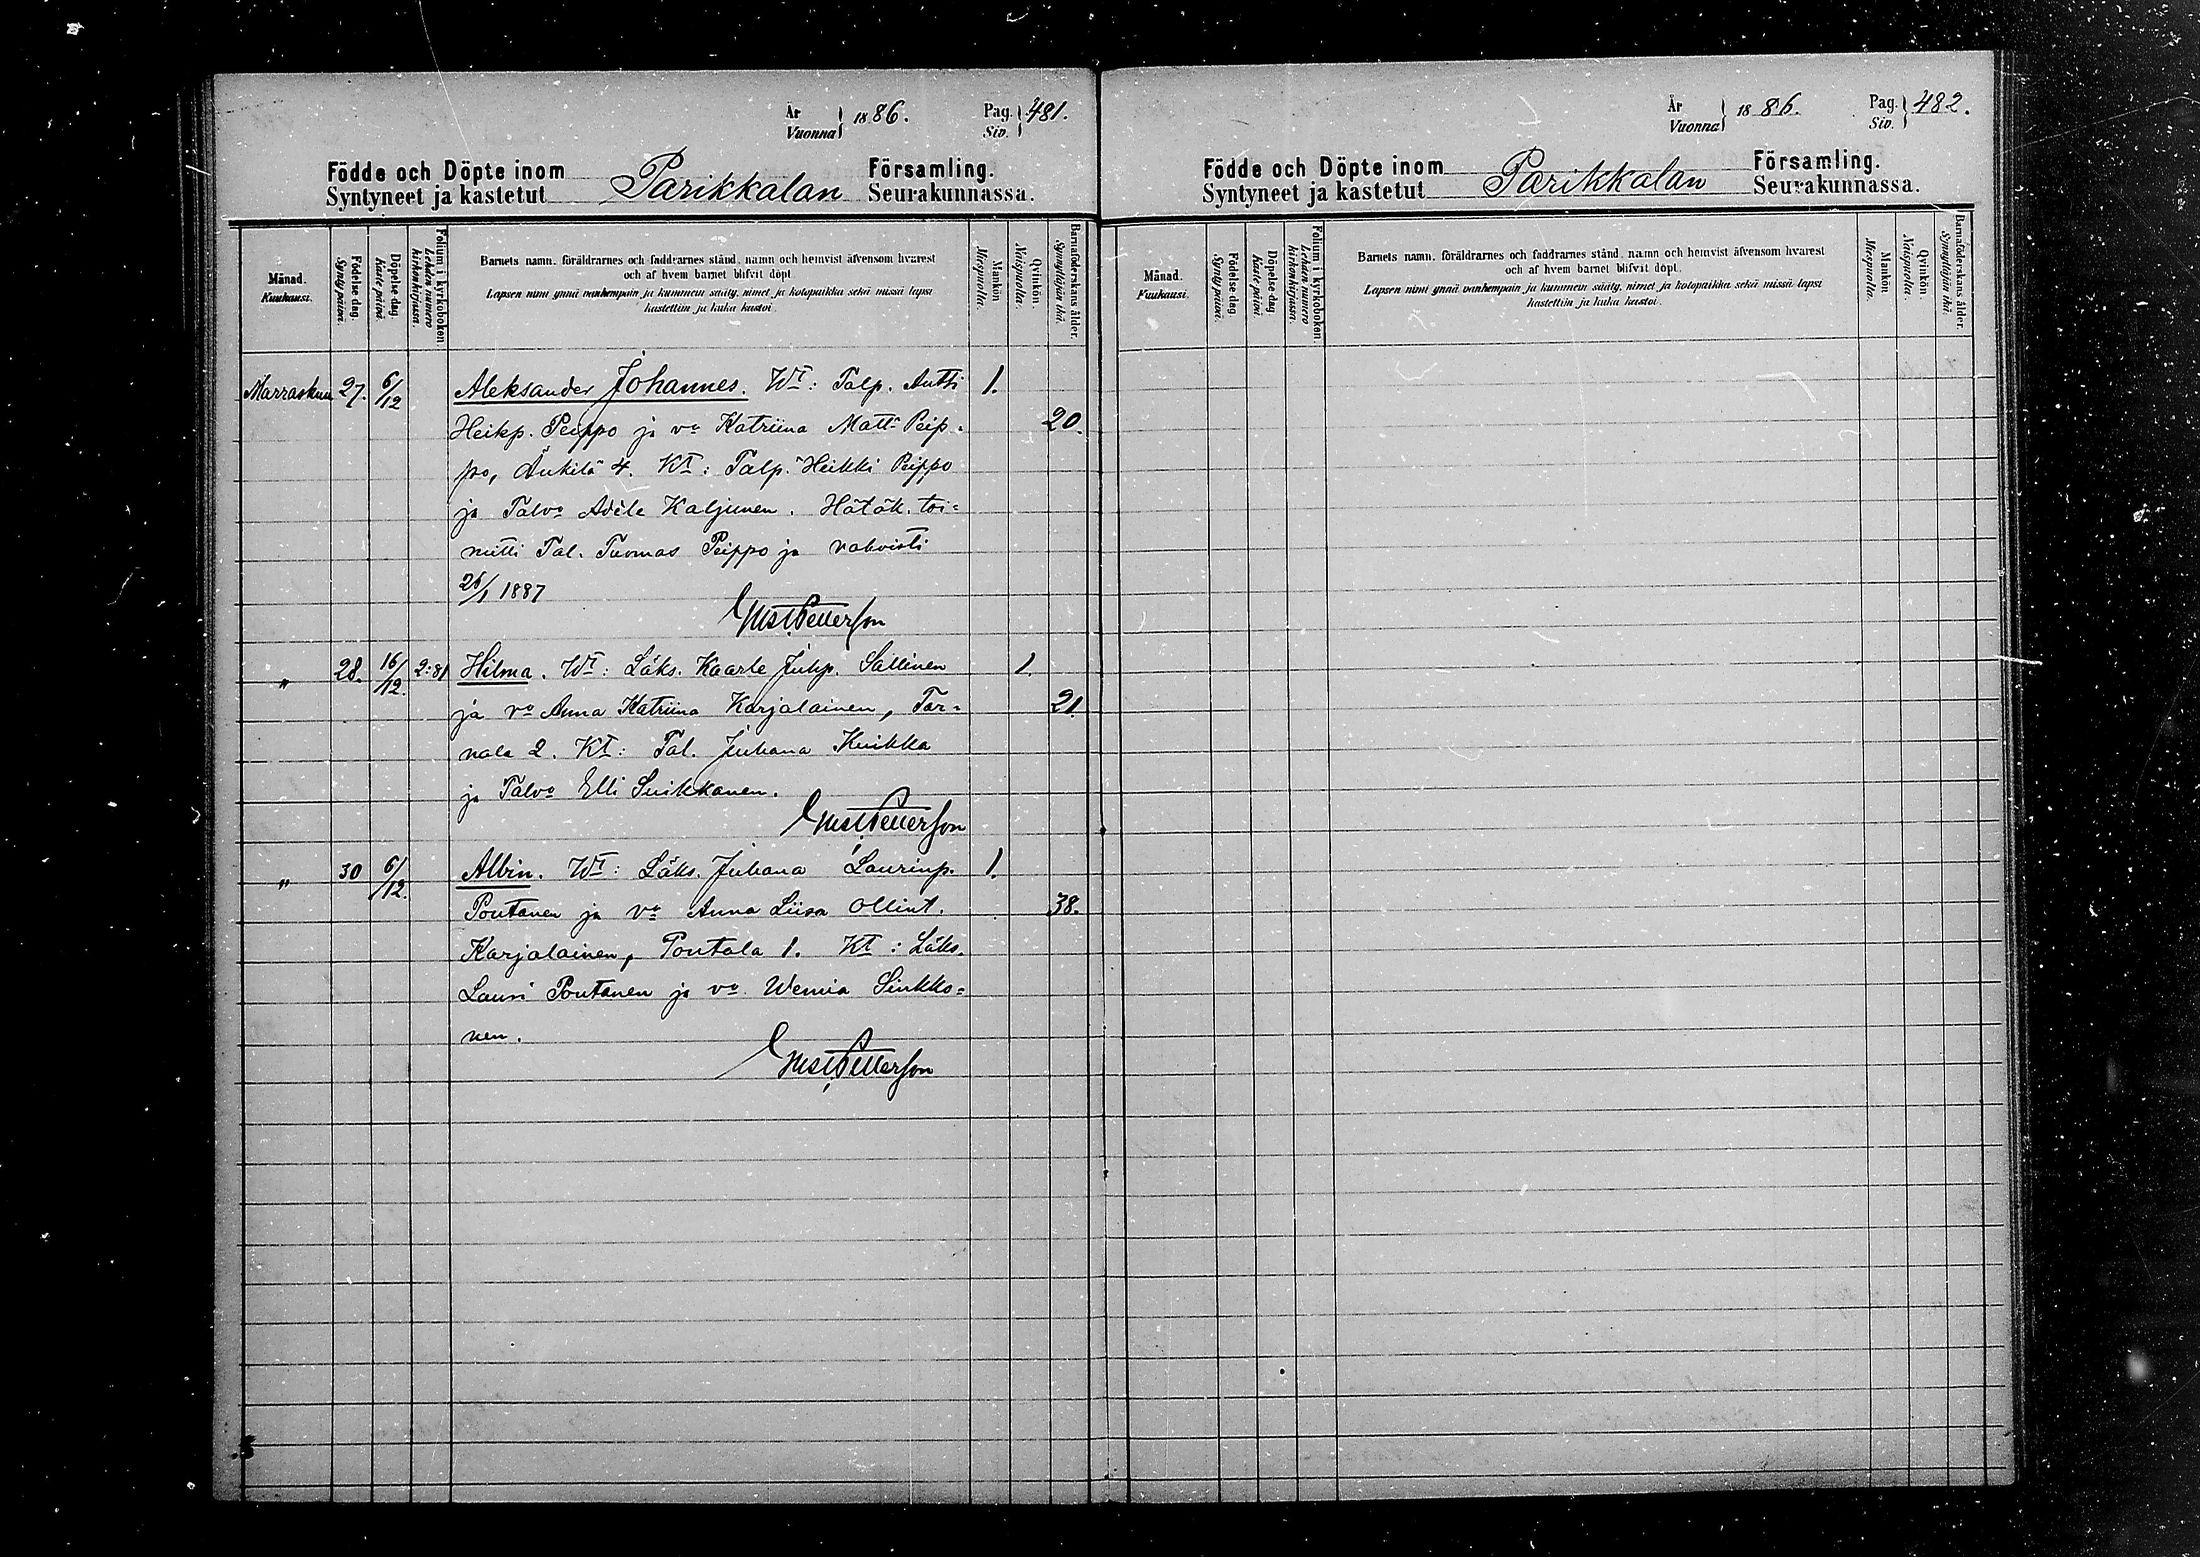 År
Vuonna } 1886.
Pag.
Siv. } 481.
Födde och Döpte inom
Syntyneet ja kastetut
Parikkalan
Församling.
Seurakunnassa.
Månad.
Kuukausi.
Födelse dag.
Synty päivä.
Döpelse dag
Kaste päivä.
Folium i kyrkoboken
Lehden numero
kirkonkirjassa.
Barnets namn. föräldrarnes och faddrarnes stånd, namn och hemvist äfvensom hvarest
och af hvem barnet blifvit döpt.
Lapsen nimi ynnä vanhempain ja kummein sääty, nimet ja kotopaikka sekä missä lapsi
kastettiin ja kuka kastoi.
Mankön
Miespuolta.
Qvinkön
Naispuolta.
Barnaföderskans ålder.
Synnyttäjän ikä.
Marraskuu 27. 6/12 Aleksander Johannes. Wt: Talp. Antti 1.
Heikp. Peippo ja vo Katriina Matt. Peip- 20.
po, Änkilä 4. Kt: Talp. Heikki Peippo
ja Talvo Adèle Kaljunen. Hätäk. toi-
mitti Tal. Tuomas Peippo ja vahvisti
26/1 1887
Ernst Petterson
" 28. 16/12 2:81 Hilma. Wt: Läks. Kaarle Juhp. Sallinen 1.
ja vo Anna Katriina Karjalainen, Tar- 21.
nala 2. Kt: Tal. Juhana Kuikka
ja Talvo Elli Suikkanen.
Ernst Petterson
" 30 6/12. Albin. Wt: Läks. Juhana Laurinp. 1.
Pontanen ja vo Anna Liisa Ollint. 38.
Karjalainen, Pontala 1. Kt: Läks.
Lauri Pontanen ja vo Wemia Sinkko-
nen.
Ernst Petterson
År
Vuonna } 1886.
Pag.
Siv. } 482.
Födde och Döpte inom
Syntyneet ja kastetut
Parikkalan
Församling.
Seurakunnassa.
Månad.
Kuukausi.
Födelse dag
Synty päivä.
Döpelse dag
Kaste päivä.
Folium i kyrkoboken
Lehden numero
kirkonkirjassa.
Barnets namn. föräldrarnes och faddrarnes stånd, namn och hemvist äfvensom hvarest
och af hvem barnet blifvit döpt.
Lapsen nimi ynnä vanhempain ja kummein sääty, nimet ja kotopaikka sekä missä lapsi
kastettiin ja kuka kastoi.
Mankön
Miespuolta.
Qvinkön
Naispuolta.
Barnaföderskans ålder.
Synnyttäjän ikä.